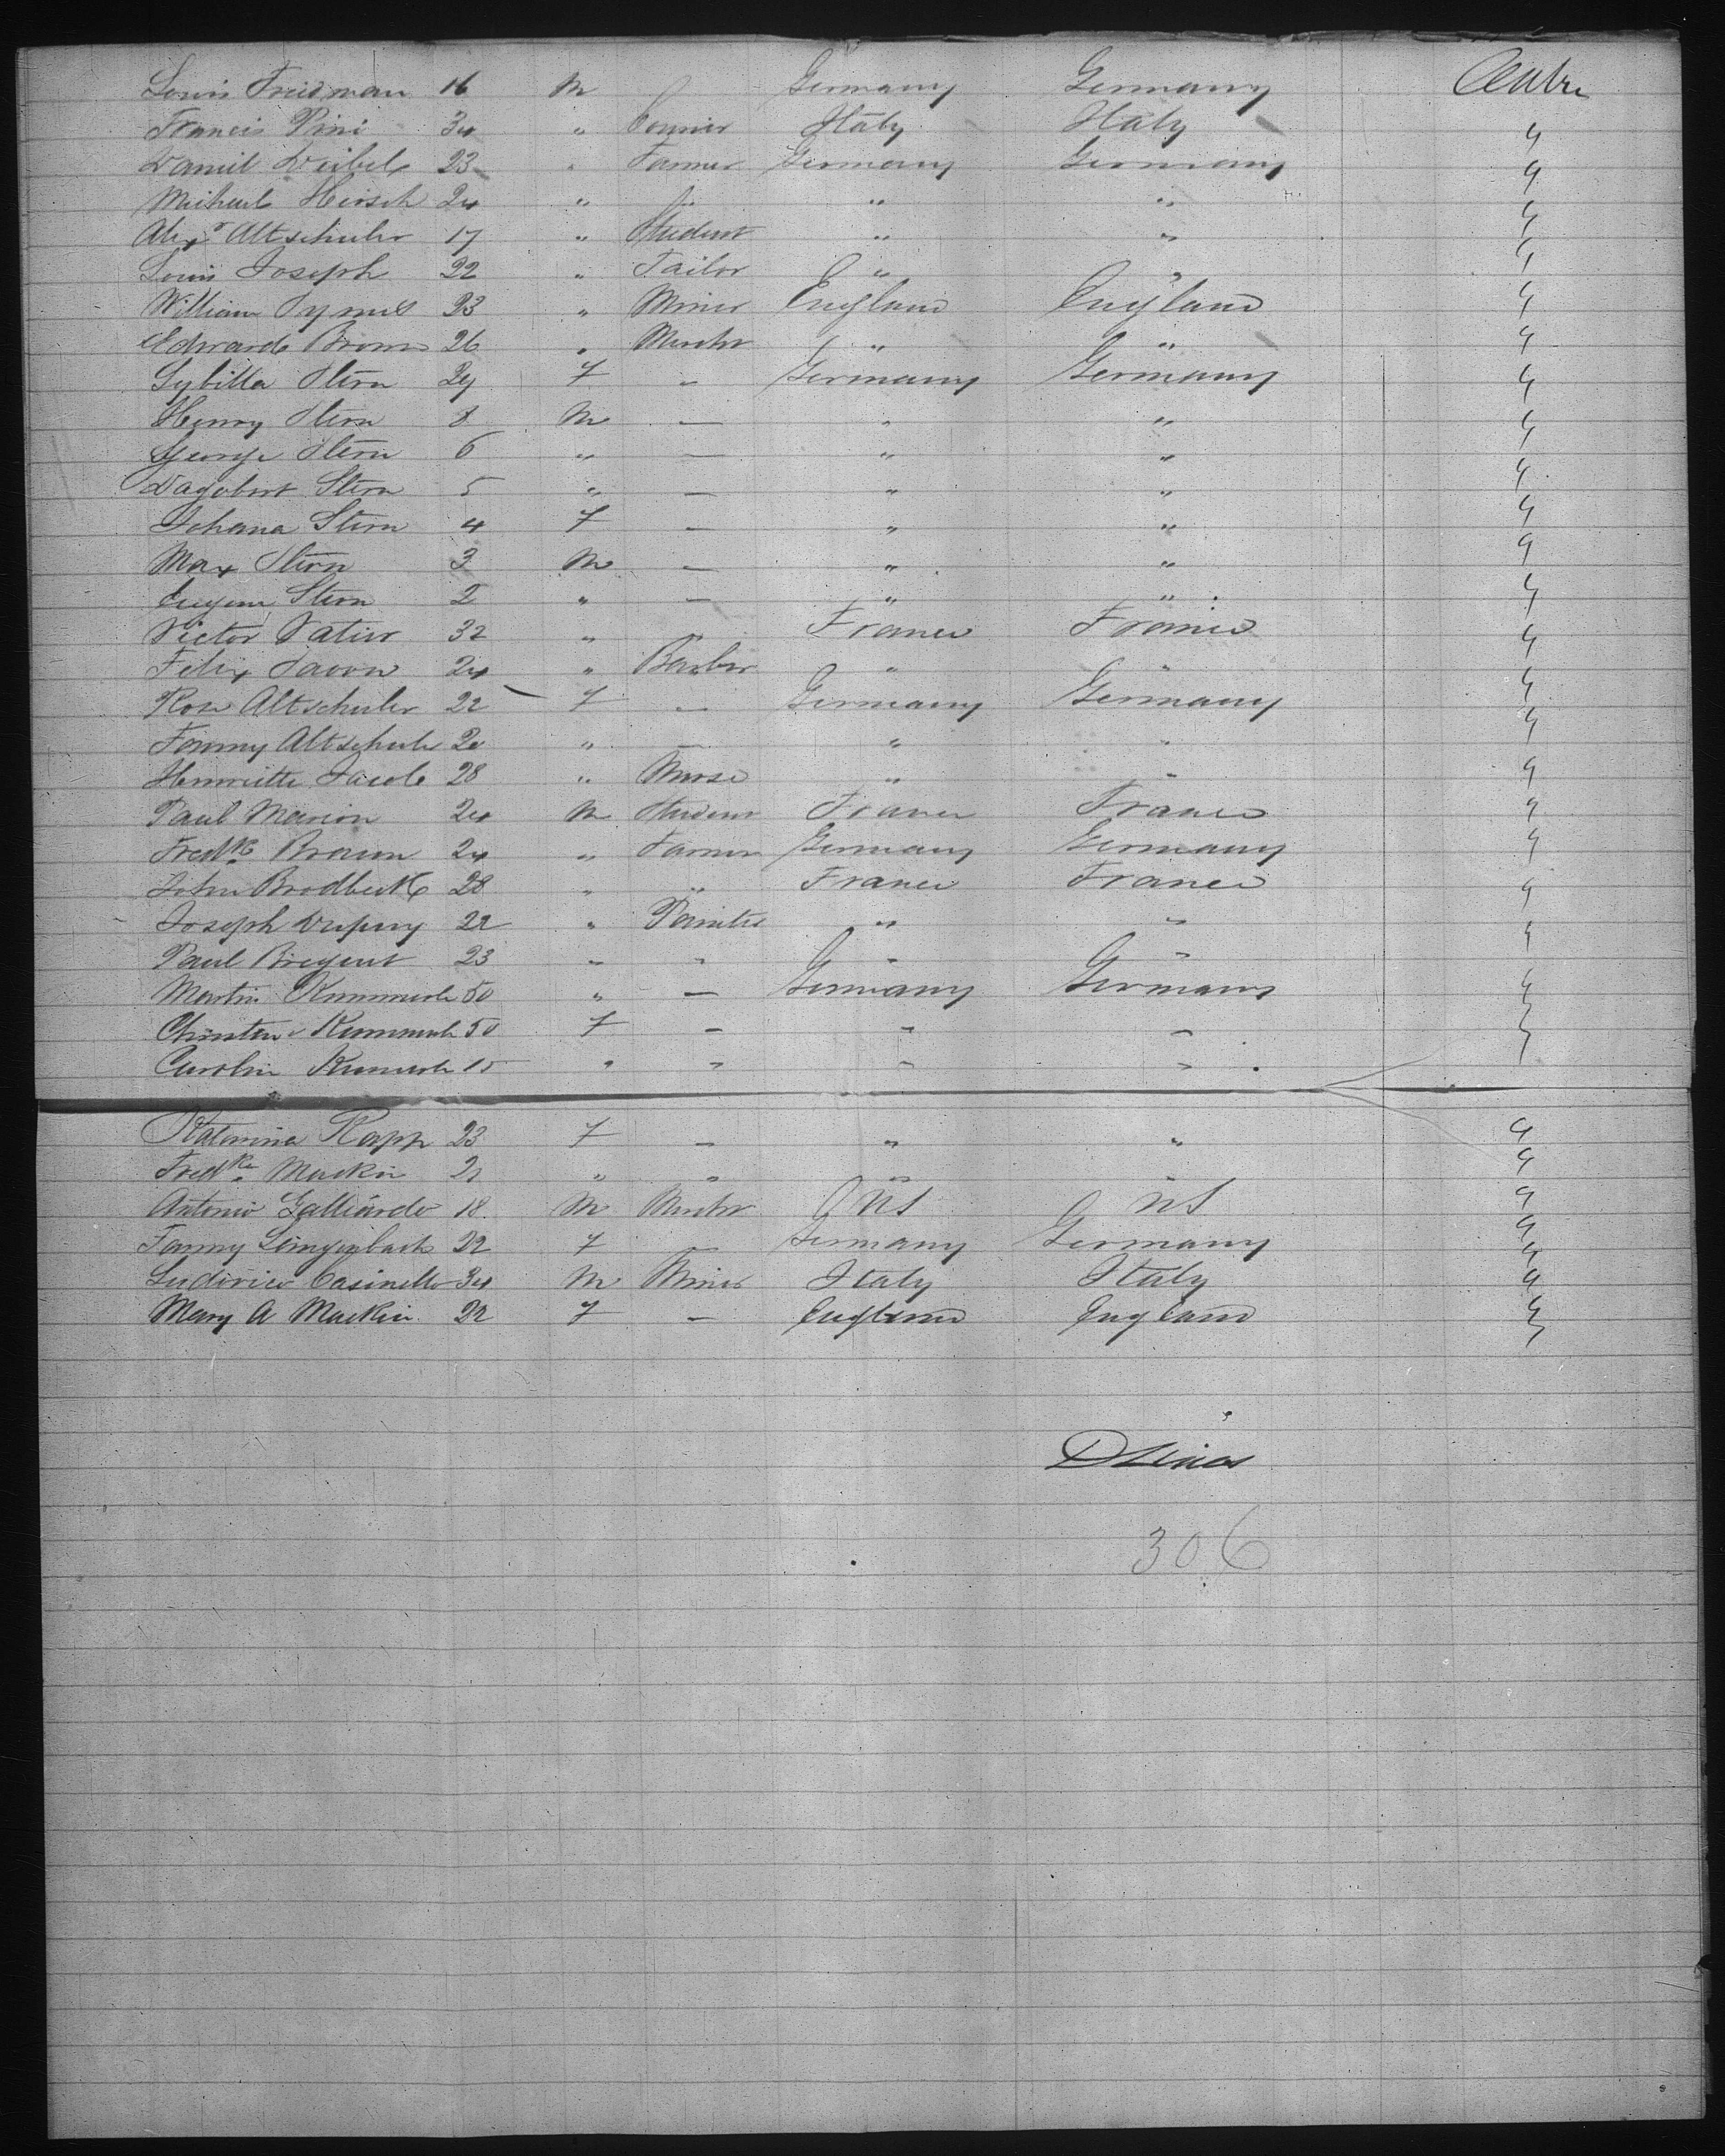 Louis Friedman 16 M Germany Germany
Francis Pini 34 " Italy Italy "
Daniel Weibel 23 " Farmer Germany Germany "
Michael Hirsch 24 " " " " "
Alexr Altschuler 17 " Student " " "
Louis Joseph 22 " Tailor " " "
William Symes 23 " Miner England England "
Edward Brown 26 " Mercht " " "
Sybilla Stern 29 F - Germany Germany "
Henry Stern 8 M - " " "
George Stern 6 " - " " "
Dagobert Stern 5 " - " " "
Johana Stern 4 F - " " "
Max Stern 3 M - " " "
Eugene Stern 2 " - " " "
Victor Vatier 32 " " France France "
Felix Savon 24 " Barber " " "
Rose Altschuler 22 F - Germany Germany "
Fanny Altschuler 20 " - " " "
Henriette Jacob 28 " Nurse " " "
Paul Marion 24 M Student France France "
Fredk Braun 24 " Farmer Germany Germany "
John Brodbeck 28 " " France France "
Joseph Dupuy 22 " Painter " " "
Paul Bregent 23 " " " " "
Martin 50 " - Germany Germany "
50 F - " " "
Carolin 15 " " " " "
Katarina Rapp 23 F - " " "
Fredke Mackin 21 " " " " "
Antonio Galliardo 18 M Mercht US US "
Fanny Lengenbach 22 F - Germany Germany "
Ludivico Casinello 34 M Miner Italy Italy "
Mary A Mackin 22 F - England England "
306